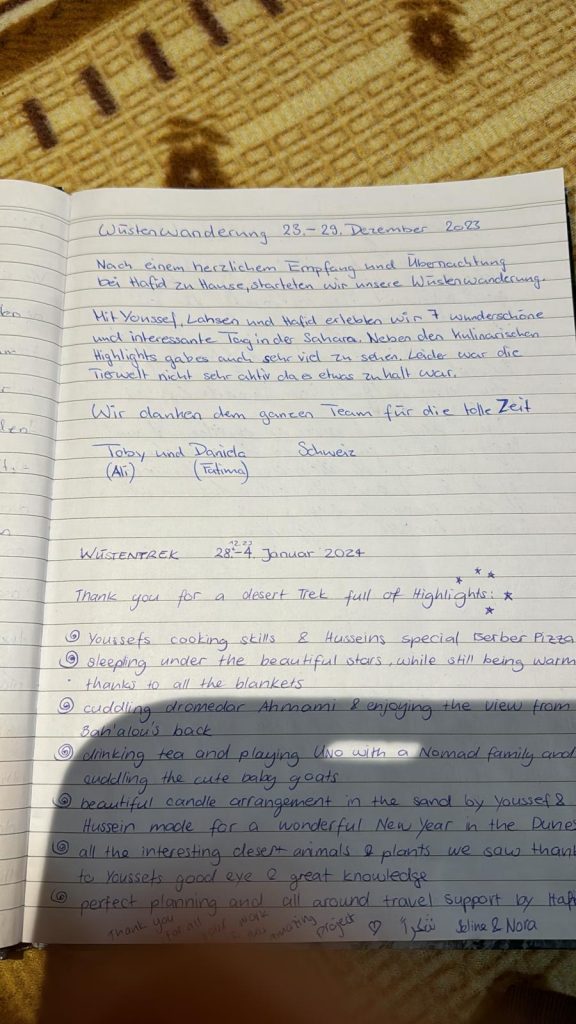 Wüstenwanderung 23.-29. Dezember 2023
Nach einem herzlichem Empfang und Übernachtung
bei Hafid zu Hause, starteten wir unsere Wüstenwanderung.
Mit Youssef, Lahsen und Hafid erlebten wir 7 wunderschöne
und interessante Tag in der Sahara. Neben den Kulinarischen
Highlights gab es auch sehr viel zu sehen. Leider war die
Tierwelt nicht sehr aktiv da es etwas zu kalt war.
Wir danken dem ganzen Team für die tolle Zeit
Toby und Daniela Schweiz
(Ali) (Fatima)
WÜSTENTREK 28.12.23-4. Januar 2024
Thank you for a desert Trek full of Highlights:
Youssefs cooking skills & Husseins special Berber Pizza
sleeping under the beautiful stars, while still being warm
thanks to all the blankets
cuddling dromedar Ahmami & enjoying the view from
Bah'alou's back
drinking tea and playing UNO with a Nomad family and
cuddling the cute baby goats
beautiful candle arrangement in the sand by Youssef &
Hussein made for a wonderful New Year in the Dunes
all the interesting desert animals & plants we saw thank
to Youssefs good eye & great knowledge
perfect planning and all around travel support by Hafi
Thank you for all your work amazing project ♡ شكراً Seline & Nora